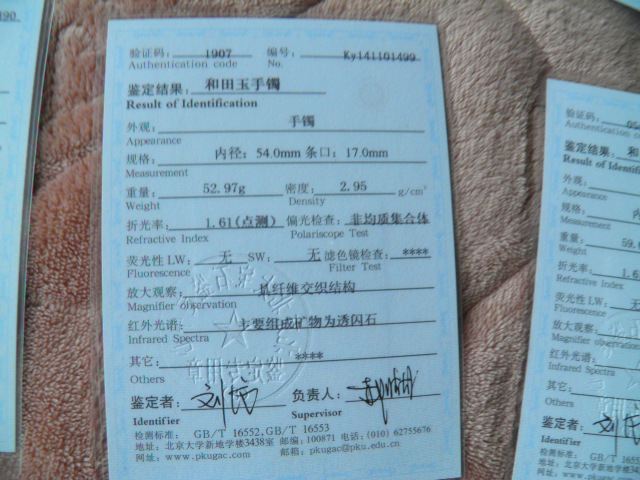 验证码: 1907 编号: Ky141101499
Authentication code No.
鉴定结果: 和田玉手镯
Result of Identification
外观: 手镯
Appearance
规格: 内径: 54.0mm 条口: 17.0mm
Measurement
重量: 52.97g 密度: 2.95 g/cm³
Weight Density
折光率: 1.61(点测) 偏光检查: 非均质集合体
Refractive Index Polariscope Test
荧光性 LW: 无 SW: 无 滤色镜检查: ****
Fluorescence Filter Test
放大观察: 具纤维交织结构
Magnifier observation
红外光谱: 主要组成矿物为透闪石
Infrared Spectra
其它: ****
Others
鉴定者: 负责人:
Identifier Supervisor
检测标准: GB/T 16552、GB/T 16553
地址: 北京大学新地学楼3438室 邮编: 100871 电话: (010) 62755676
网址: www.pkugac.com 邮箱: pkugac@pku.edu.cn
190
验证码: 05
Authentication
鉴定结果: 和
Result of Identifi
外观:
Appearance
规格: 内
Measurement
重量: 59.
Weight
折光率: 1.6
Refractive Index
荧光性 LW: 无
Fluorescence
放大观察:
Magnifier observation
红外光谱:
Infrared Spectra
其它:
Others
鉴定者:
Identifier
检测标准: GB/T 16552
地址: 北京大学新地学楼
网址: www.pkugac